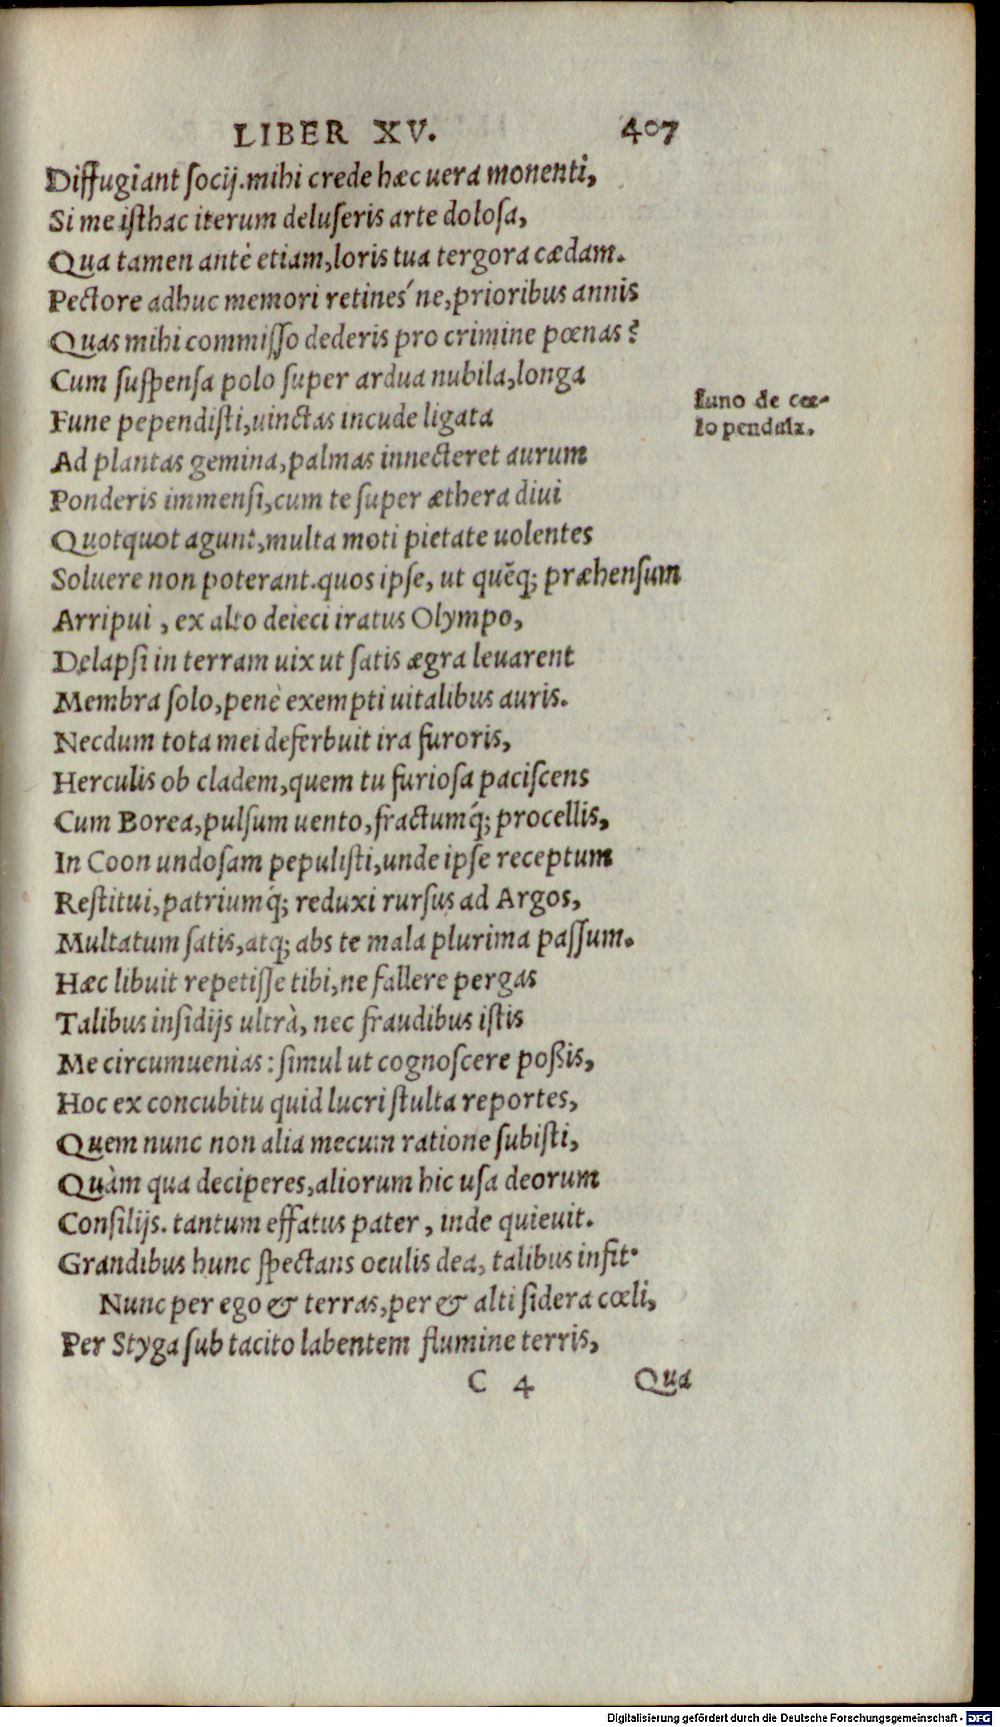 LIBER XV. 407
Diffugiant socij. mihi crede hæc uera monenti,
Si me isthac iterum deluseris arte dolosa,
Qua tamen antè etiam, loris tua tergora cædam.
Pectore adhuc memori retines´ne, prioribus annis
Quas mihi commisso dederis pro crimine pœnas?
Cum suspensa polo super ardua nubila, longa
Fune pependisti, uinctas incude ligata
Iuno de cœ-
lo pendula.
Ad plantas gemina, palmas innecteret aurum
Ponderis immensi, cum te super æthera diui
Quotquot agunt, multa moti pietate uolentes
Soluere non poterant. quos ipse, ut quẽq; præhensum
Arripui, ex alto deieci iratus Olympo,
Delapsi in terram uix ut satis ægra leuarent
Membra solo, penè exempti uitalibus auris.
Necdum tota mei deferbuit ira furoris,
Herculis ob cladem, quem tu furiosa paciscens
Cum Borea, pulsum uento, fractumq́; procellis,
In Coon undosam pepulisti, unde ipse receptum
Restitui, patriumq́; reduxi rursus ad Argos,
Multatum satis, atq; abs te mala plurima passum.
Hæc libuit repetisse tibi, ne fallere pergas
Talibus insidijs ultrà, nec fraudibus istis
Me circumuenias: simul ut cognoscere poßis,
Hoc ex concubitu quid lucri stulta reportes,
Quem nunc non alia mecum ratione subisti,
Quàm qua deciperes, aliorum hic usa deorum
Consilijs. tantum effatus pater, inde quieuit.
Grandibus hunc spectans oculis dea, talibus infit.
Nunc per ego & terras, per & alti sidera cœli,
Per Styga sub tacito labentem flumine terris,
C 4 Qua
Digitalisierung gefördert durch die Deutsche Forschungsgemeinschaft - DFG